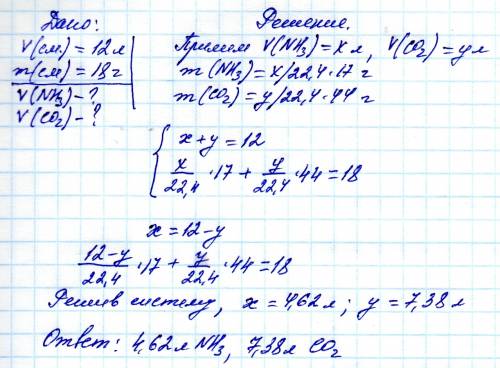 Дано:
V(см.) = 12 л
m(см) = 18 г
V(NH₃) - ?
V(CO₂) - ?
Решение.
Примем V(NH₃) = x л, V(CO₂) = y л
m(NH₃) = x/22,4 · 17 г
m(CO₂) = y/22,4 · 44 г
x + y = 12
x/22,4 · 17 + y/22,4 · 44 = 18
x = 12 - y
12-y/22,4 · 17 + y/22,4 · 44 = 18
Решив систему, x = 4,62 л; y = 7,38 л
Ответ: 4,62 л NH₃, 7,38 л CO₂